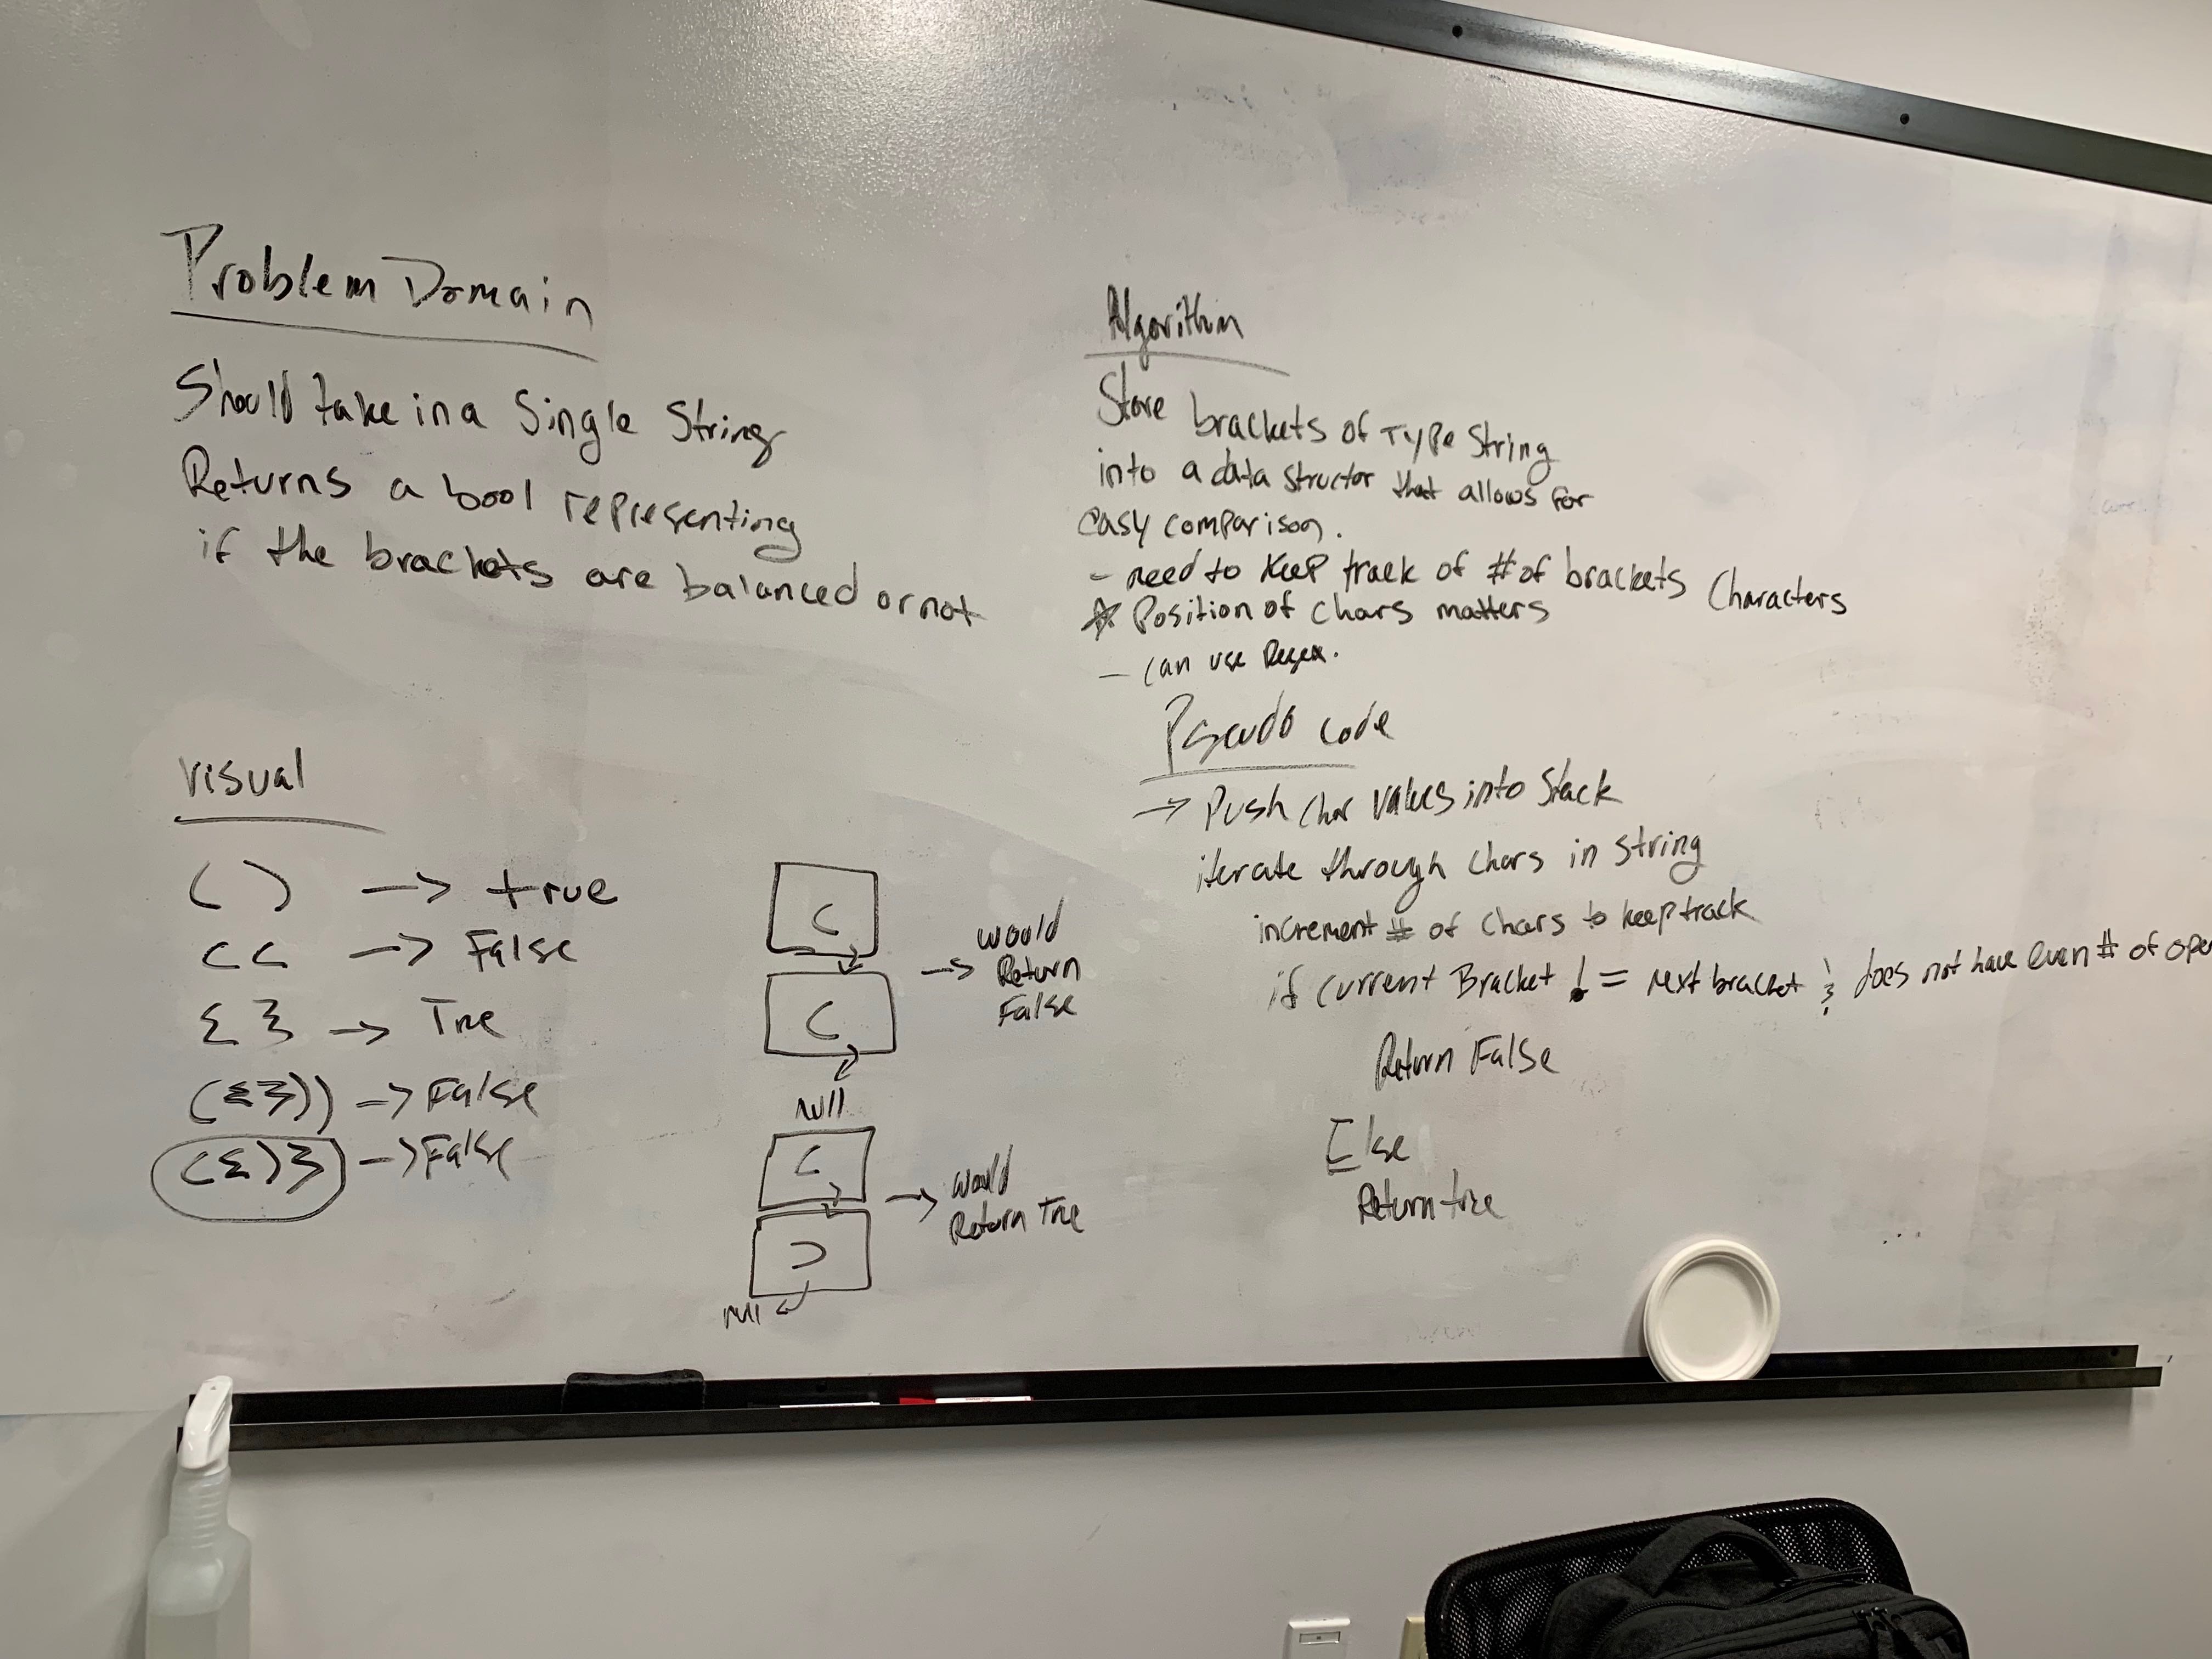 Problem Domain
Should take in a Single String
Returns a bool representing
if the brackets are balanced or not
Visual
( ) -> true
( ( -> False
{ } -> True
({})) -> False
({)} -> False
(
(
null
-> would
Return
False
(
)
null
-> would
Return True
Algorithm
Store brackets of Type String
into a data structor that allows for
easy comparison.
- need to keep track of # of brackets Characters
☆ Position of chars matters
- can use Regex.
Pseudo code
-> Push char values into Stack
iterate through chars in string
increment # of chars to keep track
if current Bracket != next bracket & does not have even # of ope
Return False
Else
Return true